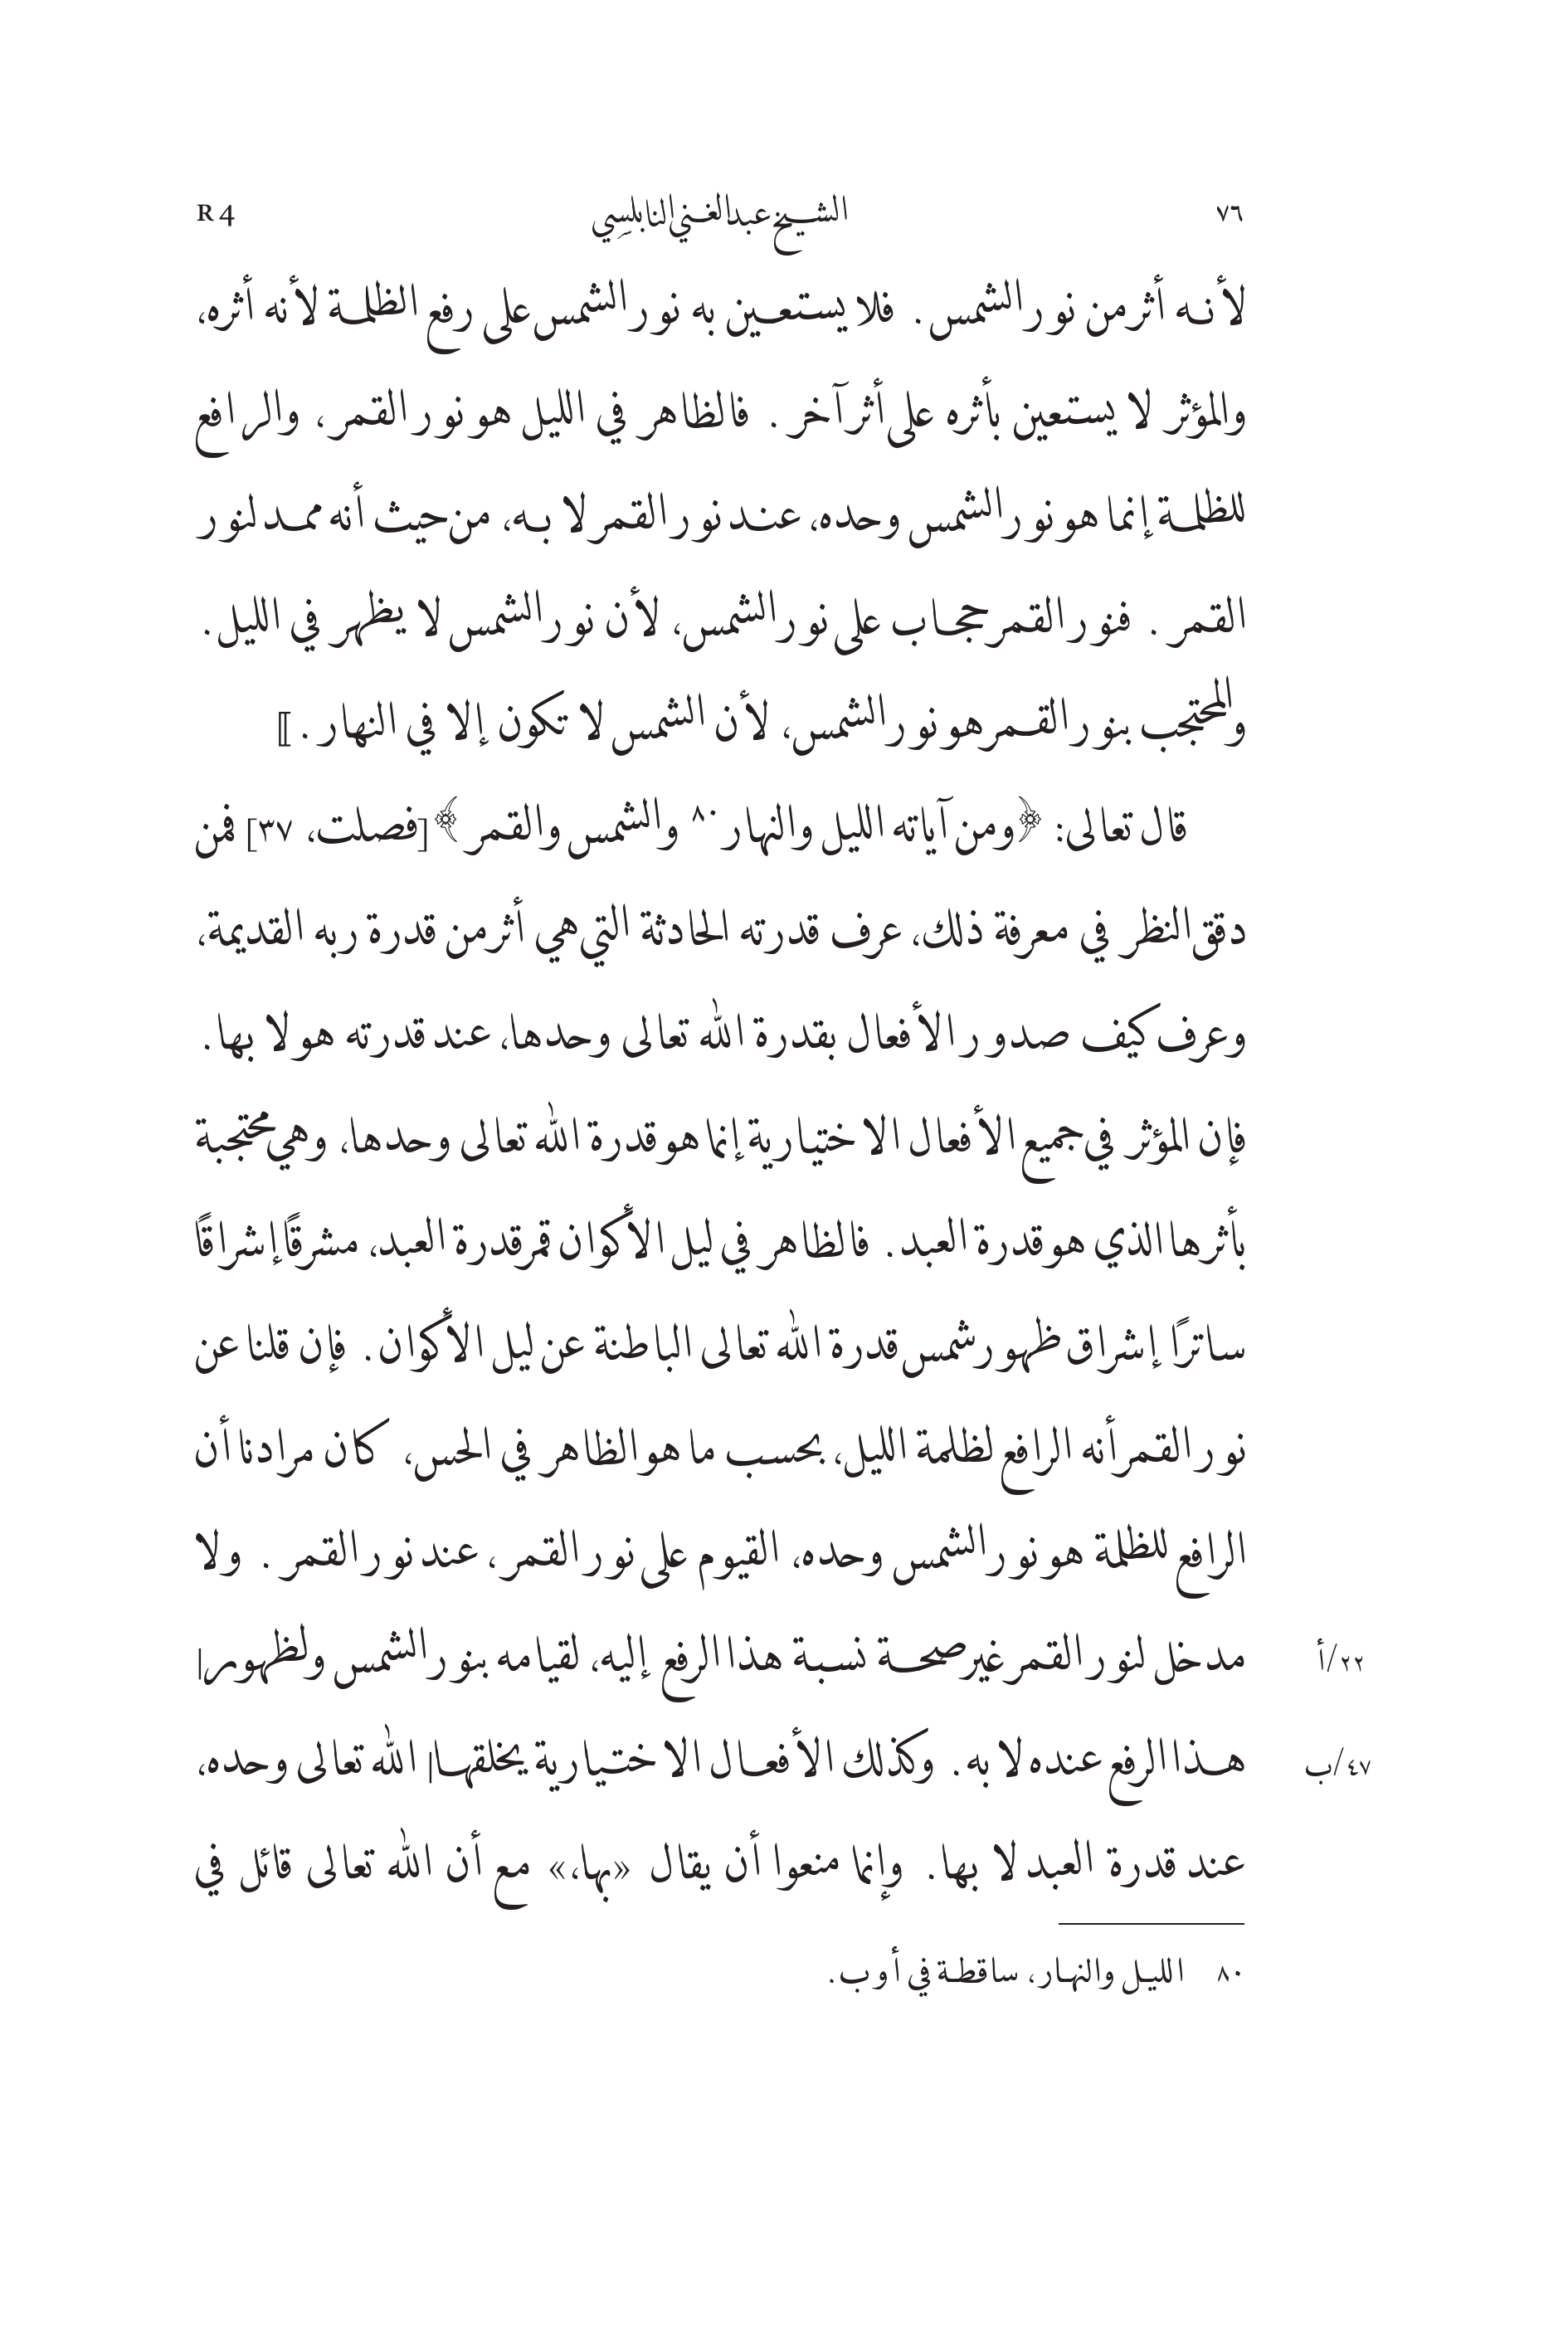 ٧٦ الشيخ عبد الغني النابلسي R 4
لأنه أثر من نور الشمس. فلا يستعين به نور الشمس على رفع الظلمة لأنه أثره،
والمؤثر لا يستعين بأثره على أثر آخر. فالظاهر في الليل هو نور القمر، والرافع
للظلمة إنما هو نور الشمس وحده، عند نور القمر لا به، من حيث أنه ممد لنور
القمر. فنور القمر حجاب على نور الشمس، لأن نور الشمس لا يظهر في الليل.
والمحتجب بنور القمر هو نور الشمس، لأن الشمس لا تكون إلا في النهار. ⟧
قال تعالى: ﴿ومن آياته الليل والنهار٨٠ والشمس والقمر﴾ [فصلت، ٣٧] فمن
دقق النظر في معرفة ذلك، عرف قدرته الحادثة التي هي أثر من قدرة ربه القديمة،
وعرف كيف صدور الأفعال بقدرة الله تعالى وحدها، عند قدرته هو لا بها.
فإن المؤثر في جميع الأفعال الاختيارية إنما هو قدرة الله تعالى وحدها، وهي محتجبة
بأثرها الذي هو قدرة العبد. فالظاهر في ليل الأكوان قمر قدرة العبد، مشرقًا إشراقًا
ساترًا إشراق ظهور شمس قدرة الله تعالى الباطنة عن ليل الأكوان. فإن قلنا عن
نور القمر أنه الرافع لظلمة الليل، بحسب ما هو الظاهر في الحس، كان مرادنا أن
الرافع للظلمة هو نور الشمس وحده، القيوم على نور القمر، عند نور القمر. ولا
٢٢/أ مدخل لنور القمر غير صحة نسبة هذا الرفع إليه، لقيامه بنور الشمس ولظهور|
٤٧/ب هذا الرفع عنده لا به. وكذلك الأفعال الاختيارية يخلقها| الله تعالى وحده،
عند قدرة العبد لا بها. وإنما منعوا أن يقال «بها،» مع أن الله تعالى قائل في
٨٠ الليل والنهار، ساقطة في أ و ب.